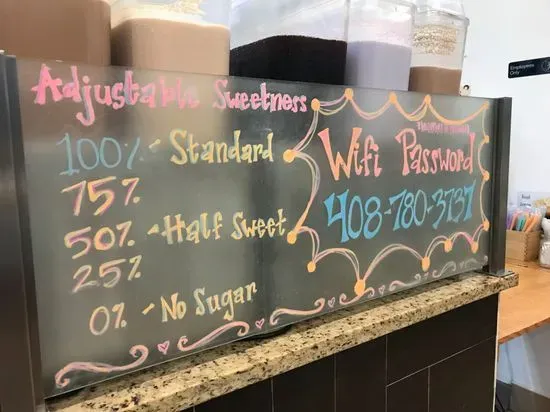 Adjustable Sweetness
100% - Standard
75%
50% - Half Sweet
25%
0% - No Sugar
Wifi Password
408-780-3737
Employees
Only